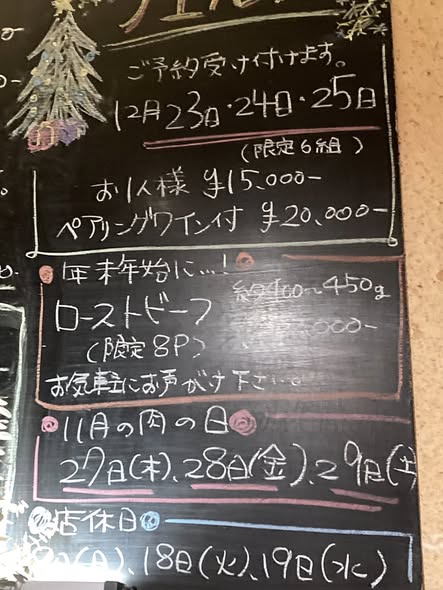 ご予約受け付けます。
12月23日・24日・25日
(限定6組)
お1人様 ¥15,000-
ペアリングワイン付 ¥20,000-
年末年始に…!
ローストビーフ 約400~450g
(限定8P)
お気軽にお声がけ下さい。
11月の肉の日
27日(木)、28日(金)、29日(土)
店休日
18日(火)、19日(水)